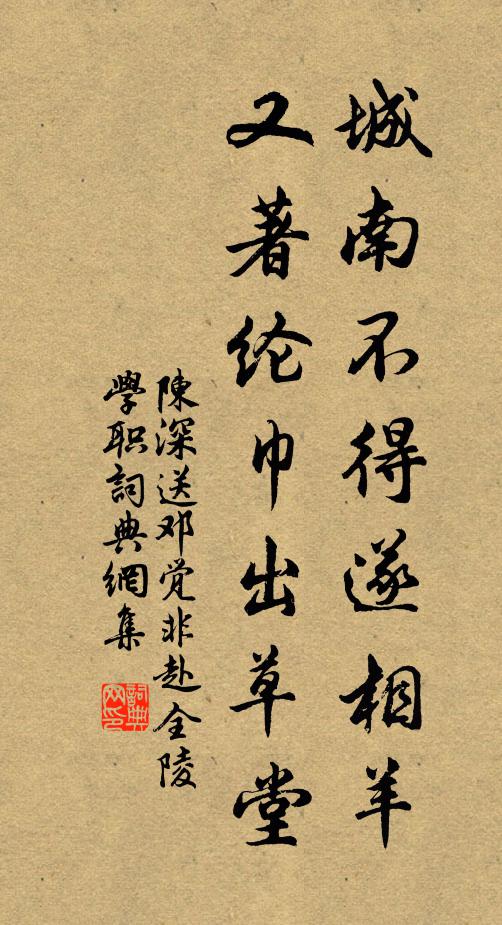 城南不得遂相羊
又著纶巾出草堂
陳深送邓觉非赴全陵
學职詞典網集
詞典网印